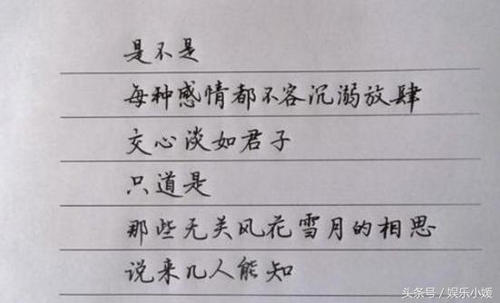 是不是
每种感情都不容沉溺放肆
交心淡如君子
只道是
那些无关风花雪月的相思
说来几人能知
头条号/娱乐小媛